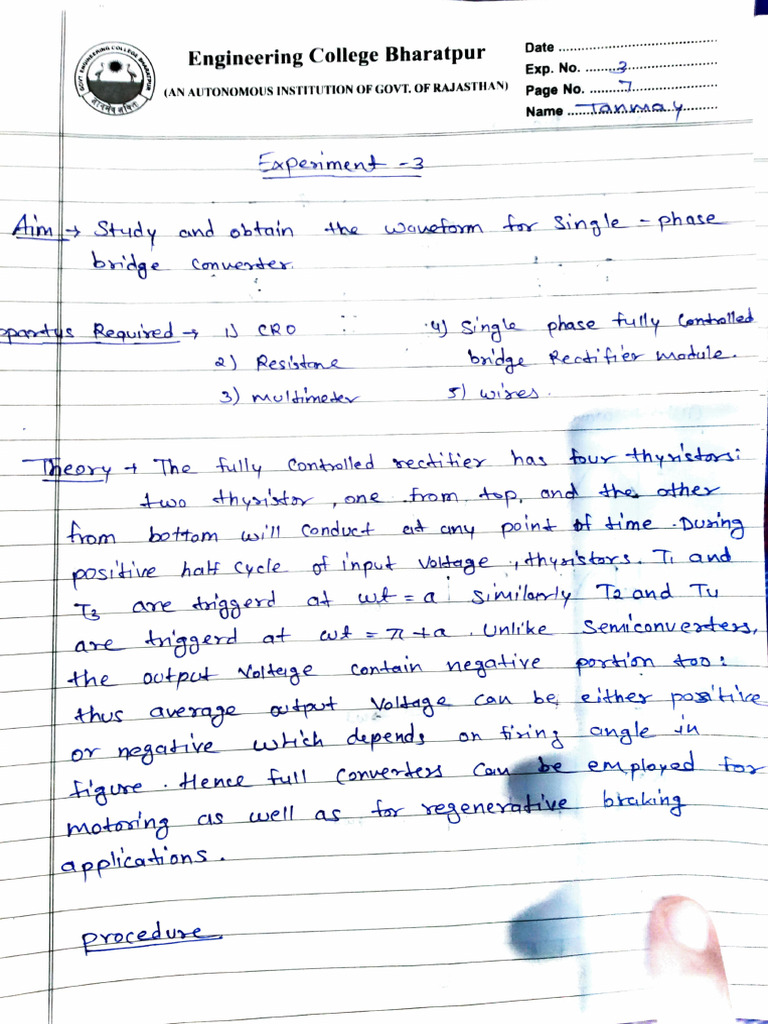 Engineering College Bharatpur
(AN AUTONOMOUS INSTITUTION OF GOVT. OF RAJASTHAN)
GOVT ENGINEERING COLLEGE BHARATPUR
Date
Exp. No. 3
Page No. 7
Name Tanmay
Experiment - 3
Aim → Study and obtain the waveform for Single - phase
bridge converter.
pparatus Required → 1) CRO
2) Resistane
3) multimeter
4) Single phase fully controlled
bridge Rectifier module.
5) wires.
Theory → The fully controlled rectifier has four thyristors:
two thyristor, one from top, and the other
from bottom will conduct at any point of time. During
positive half cycle of input voltage, thyristors. T1 and
T3 are triggerd at wt = a similarly T2 and T4
are triggerd at wt = π + a. Unlike Semiconverters,
the output voltage contain negative portion too:
thus average output voltage can be either positive
or negative which depends on firing angle in
figure. Hence full converters can be employed for
motoring as well as for regenerative braking
applications.
procedure